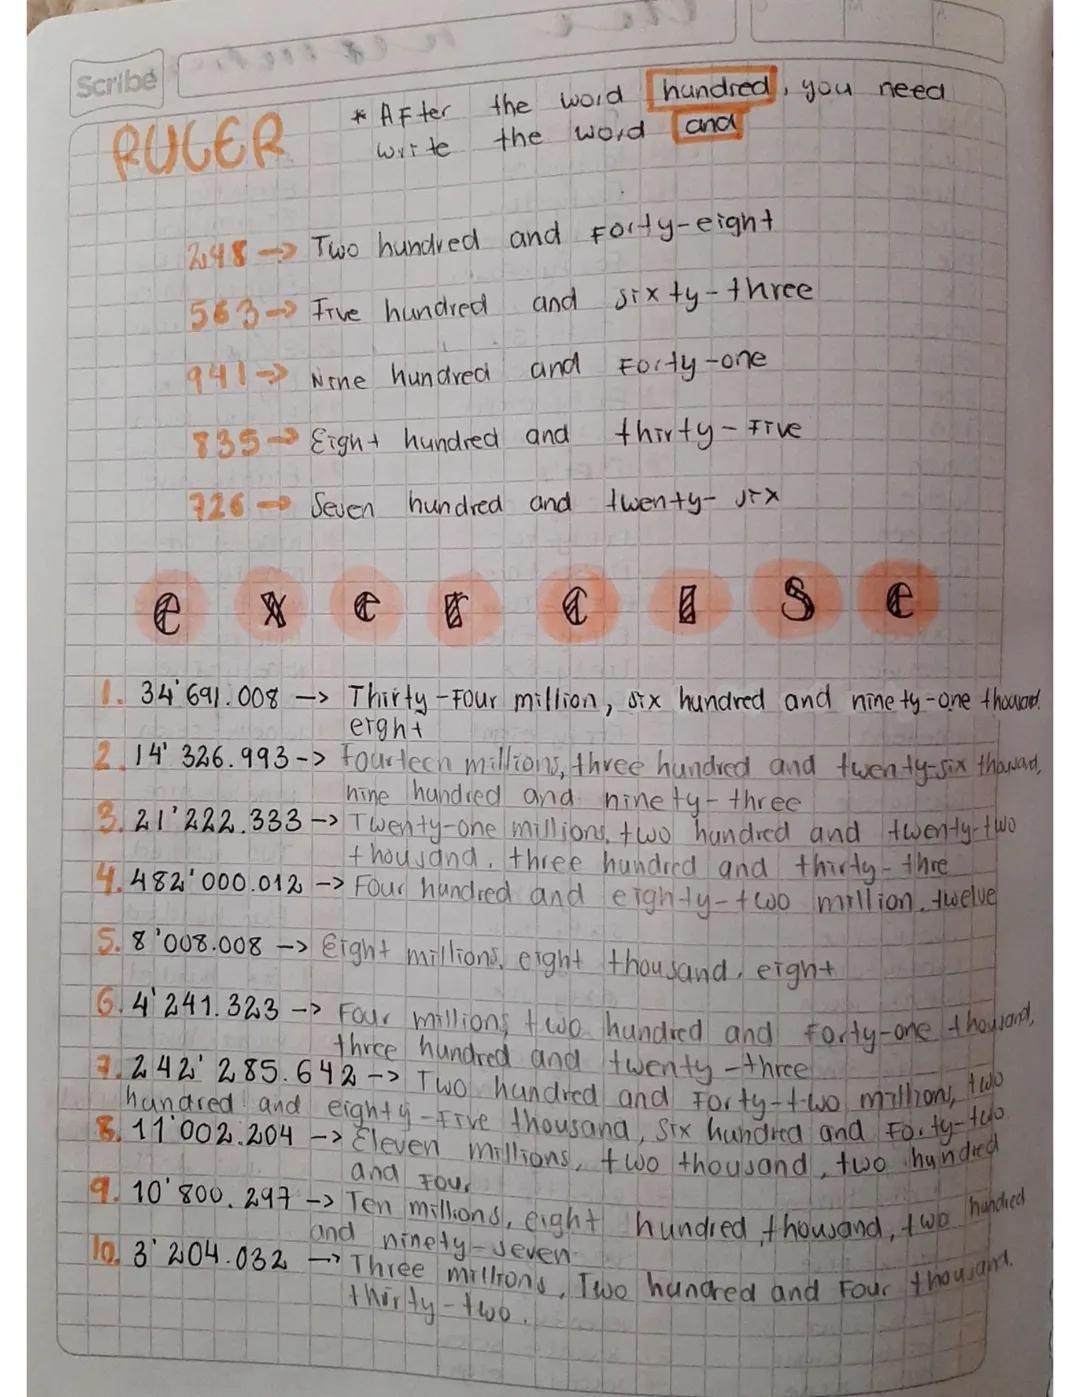 Scribe
RULER
* After the word hundred, you need
write the word and
248 → Two hundred and forty-eight
563 → Five hundred and sixty-three
941 → Nine hundred and forty-one
835 → Eight hundred and thirty-five
726 → Seven hundred and twenty-six
exercise
1. 34'691.008 –> Thirty-four million, six hundred and ninety-one thousand.
eight
2. 14'326.993 –> fourteen millions, three hundred and twenty-six thousand,
nine hundred and ninety-three
3. 21'222.333 –> Twenty-one millions, two hundred and twenty-two
thousand, three hundred and thirty-thre
4. 482'000.012 –> Four hundred and eighty-two million, twelve
5. 8'008.008 –> Eight millions, eight thousand, eight
6. 4'241.323 –> Four millions two hundred and forty-one thousand,
three hundred and twenty-three
7. 242'285.642 –> Two hundred and forty-two millions, two
hundred and eighty-five thousand, six hundred and forty-two
8. 11'002.204 –> Eleven millions, two thousand, two hundred
and four
9. 10'800.297 –> Ten millions, eight hundred thousand, two hundred
and ninety-seven
10. 3'204.032 –> Three millions, Two hundred and four thousand,
thirty-two.